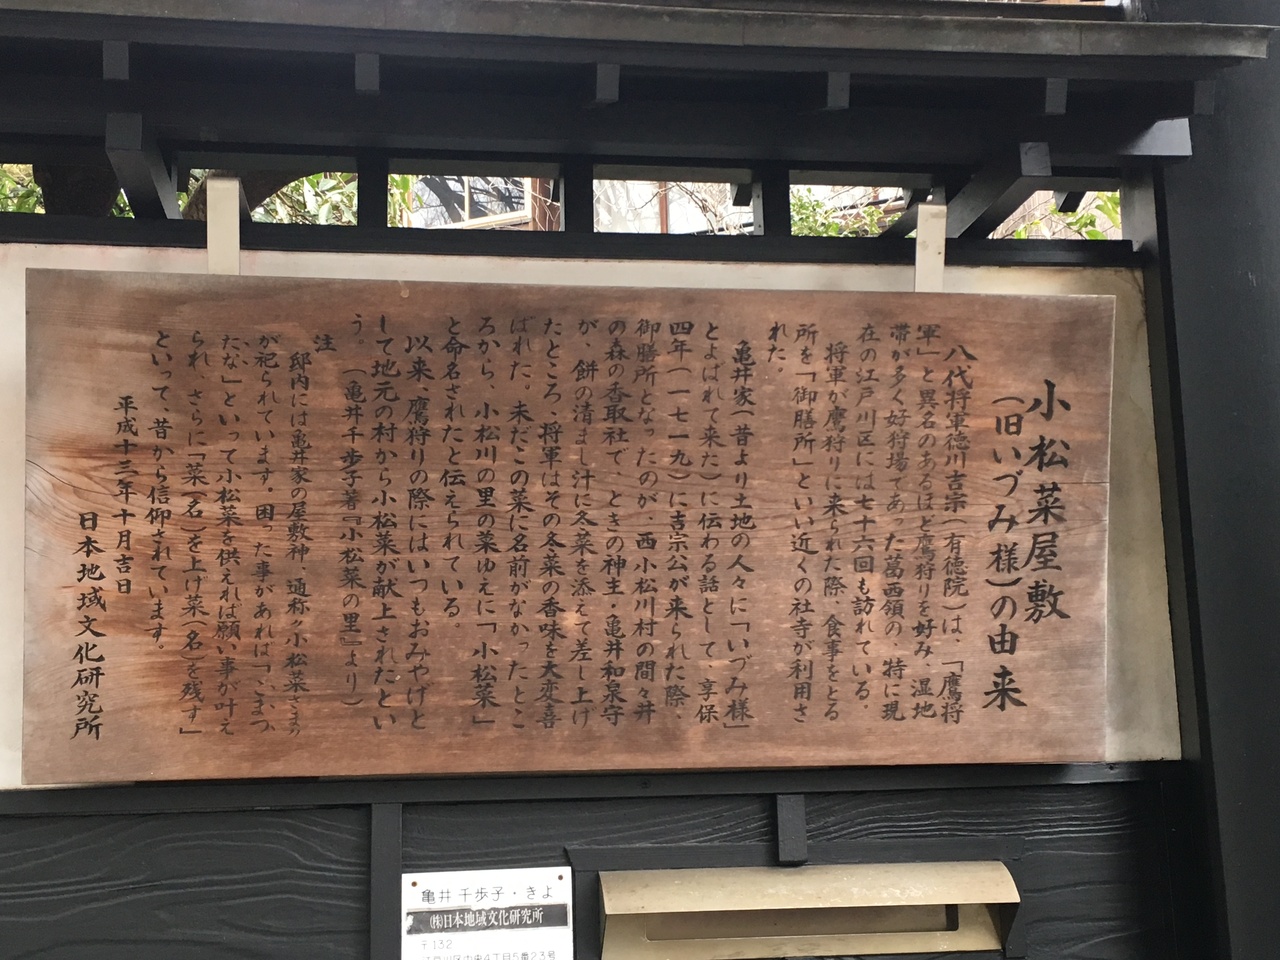 小松菜屋敷
（旧いづみ様）の由来
八代将軍徳川吉宗（有徳院）は、「鷹将
軍」と異名のあるほど鷹狩りを好み、湿地
帯が多く好狩場であった葛西領の、特に現
在の江戸川区には七十六回も訪れている。
将軍が鷹狩りに来られた際、食事をとる
所を「御膳所」といい近くの社寺が利用さ
れた。
亀井家（昔より土地の人々に「いづみ様」
とよばれて来た）に伝わる話として、享保
四年（一七一九）に吉宗公が来られた際、
御膳所となったのが、西小松川村の間々井
の森の香取社で、ときの神主・亀井和泉守
が、餅の清まし汁に冬菜を添えて差し上げ
たところ、将軍はその冬菜の香味を大変喜
ばれた。未だこの菜に名前がなかったとこ
ろから、小松川の里の菜ゆえに「小松菜」
と命名されたと伝えられている。
以来、鷹狩りの際にはいつもおみやげと
して地元の村から小松菜が献上されたとい
う。（亀井千歩子著『小松菜の里』より）
注
邸内には亀井家の屋敷神、通称〃小松菜さま〃
が祀られています。困った事があれば「こまつ
たな」といって小松菜を供えれば願い事が叶え
られ、さらに「菜（名）を上げ菜（名）を残す」
といって、昔から信仰されています。
平成十三年十月吉日
日本地域文化研究所
亀井 千歩子・きよ
(株)日本地域文化研究所
〒132
江戸川区中央4丁目5番23号